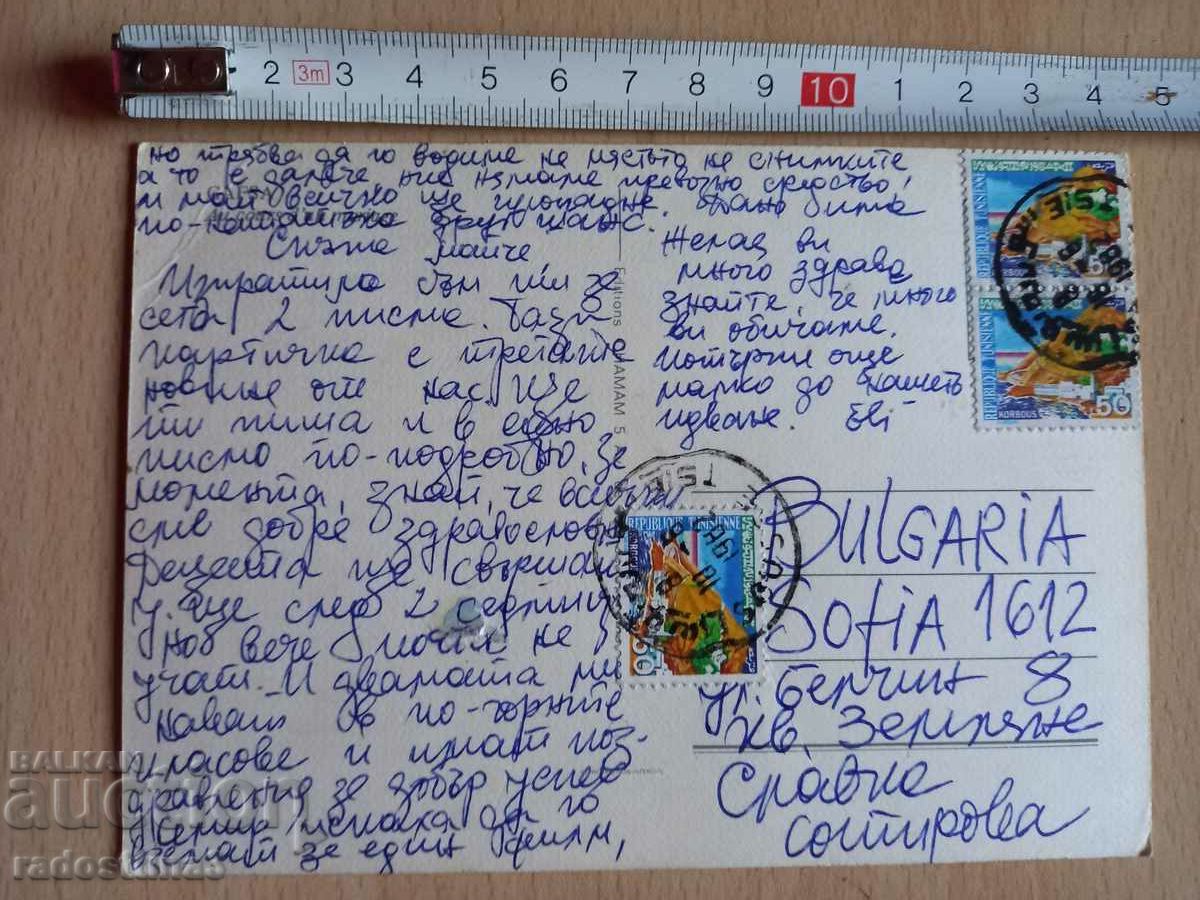 2 3m 3 4 5 6 7 8 9 10 1 2 3 4 5
но трябва да го водиме на мястото на снимките
а то е далече ние нямаме превозно средство,
и май всичко ще пропадне. Дано има
по-нататък друг шанс.
Мила майче
Изпратила съм ти за
сега 2 писма. Тази
картичка е третата
новина от нас. Ще
ти пиша и в едно
писмо по-подробно, за
момента, знай, че всички
сме добре здравословно
Децата ще свършат
у-ще след 2 седмици
но вече почти не
учат. И двамата ми
в по-горните
класове и имат поз-
дравления за добър успех
искаха да го
за един филм,
Желая ви
много здраве
знайте, че много
ви обичаме.
Потърпи още
малко до нашето
идване. Еві
Editions GAMAM 5
REPUBLIQUE TUNISIENNE
KORBOUS
50
REPUBLIQUE TUNISIENNE
KORBOUS
50
REPUBLIQUE TUNISIENNE
KORBOUS
50
BULGARIA
SOFIA 1612
ул. Белчин 8
кв. Земляне
Сравка
Сотирова
BALKAN
auction
radostina65